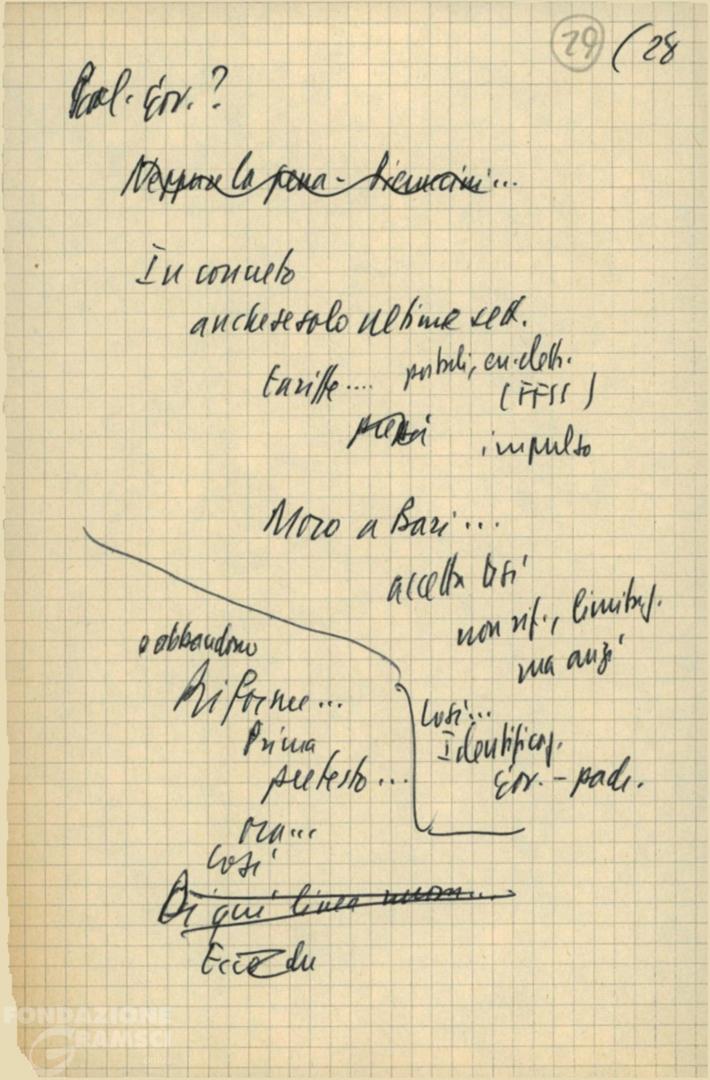 29 (28
Pol. gov.?
Neppure la pena -
In concreto
anche se solo ultime sett.
Tariffe.... postali,
(FFSS)
prezzi impulso
Moro a Bari...
accetta tesi
non rif., limitaz.
ma anzi
o abbandono
Riforme... Così...
Prima Identificaz.
pretesto... gov. - padr.
ora...
Così
Di qui linea
FONDAZIONE
GRAMSCI